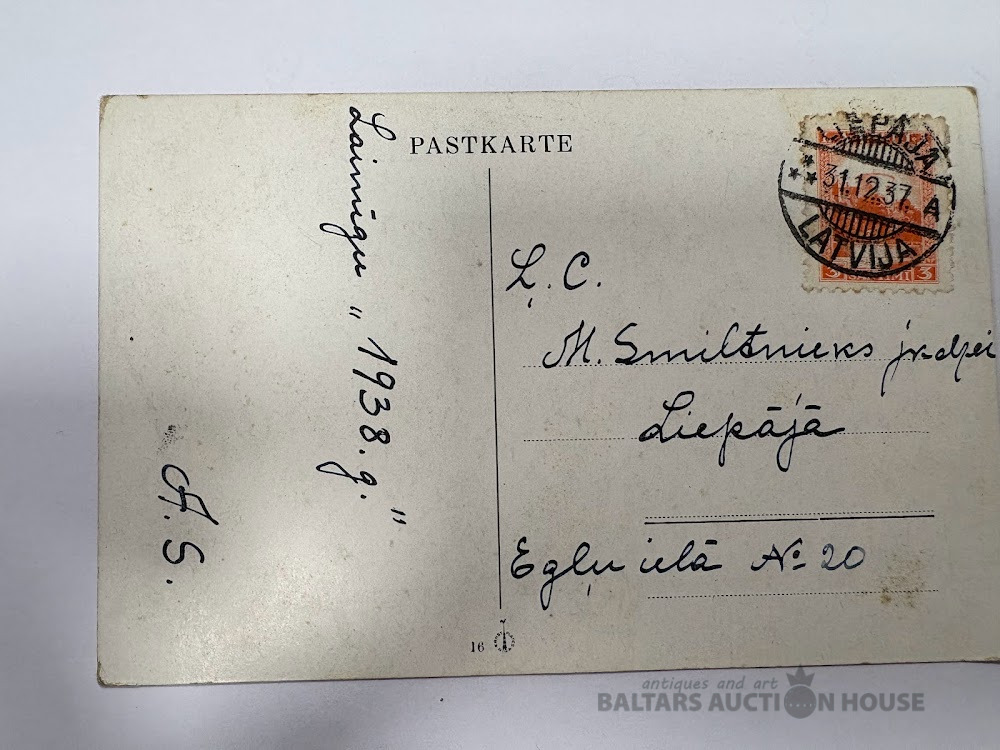 PASTKARTE
Laimigu „1938.g."
A. S.
LIEPĀJA
31.12.37. A
LATVIJA
3 3
Ļ. C.
M. Smiltnieks jr. dzei
Liepājā
Egļu ielā № 20
16
antiques and art
BALTARS AUCTION HOUSE